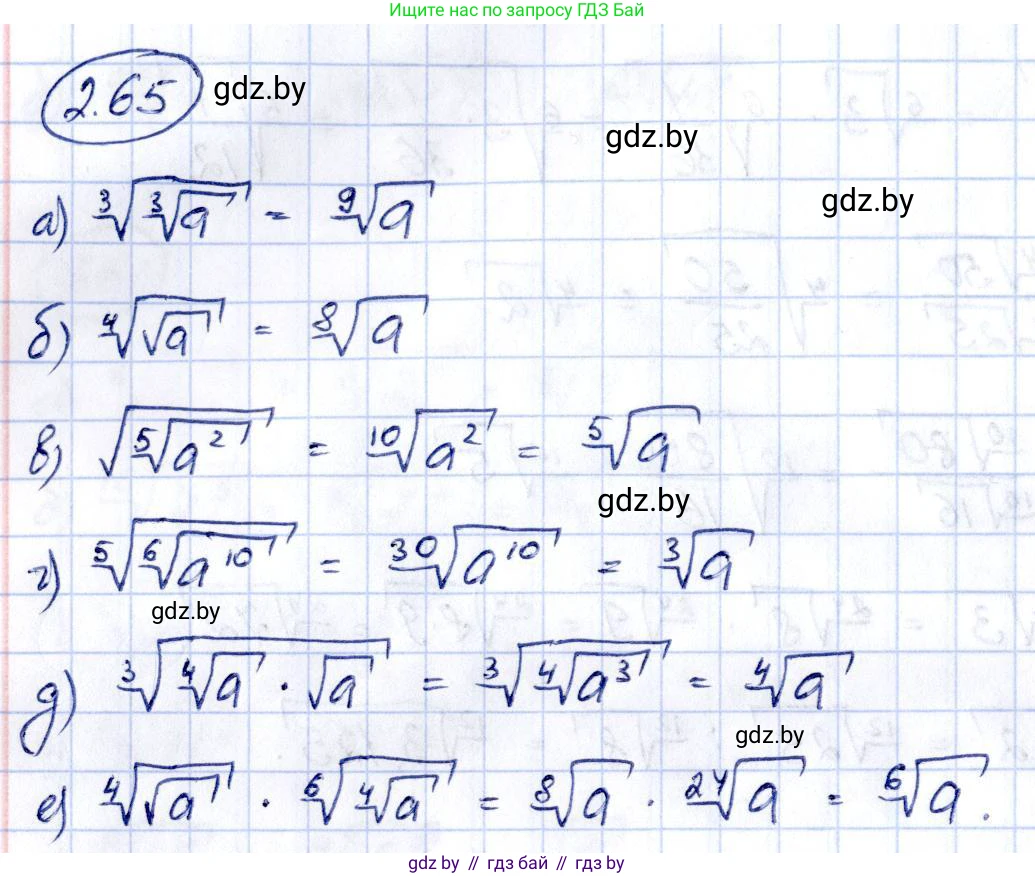 Ищите нас по запросу ГДЗ Бай
2.65 gdz.by
gdz.by
gdz.by
а) ∛(∛a) = ⁹√a
б) ⁴√(√a) = ⁸√a
в) √(⁵√(a²)) = ¹⁰√(a²) = ⁵√a
gdz.by
г) ⁵√(⁶√(a¹⁰)) = ³⁰√(a¹⁰) = ³√a
gdz.by
д) ³√(⁴√a · √a) = ³√(⁴√(a³)) = ⁴√a
gdz.by
е) ⁴√(√a) · ⁶√(⁴√a) = ⁸√a · ²⁴√a = ⁶√a.
gdz.by // гдз бай // гдз by